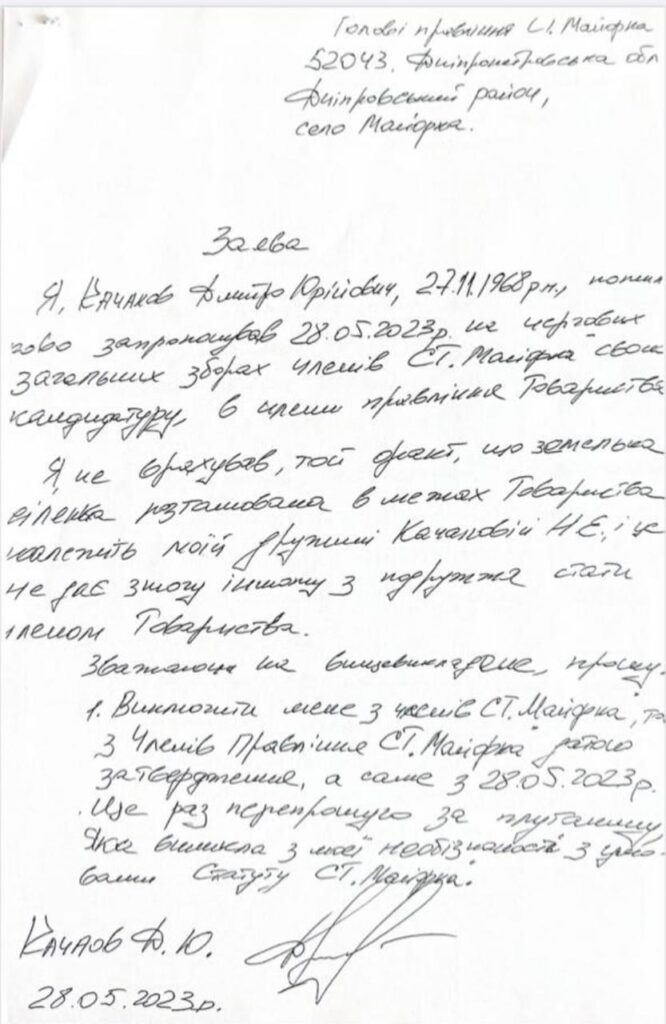 Голові правління СТ. Майорка
52043. Дніпропетровська обл
Дніпровський район,
село Майорка.
Заява
Я, Качанов Дмитро Юрійович, 27.11.1968р.н., помил
ково запропонував 28.05.2023р. на чергових
загальних зборах членів СТ. "Майорка" свою
кандидатуру, в члени правління Товариства
Я не врахував, той факт, що земельна
ділянка розташована в межах Товариства
належить моїй дружині Качановій Н.Е, і це
не дає змогу іншому з подружжя стати
членом Товариства.
Зважаючи на вищевикладене, прошу.
1. Виключити мене з членів СТ. "Майорка", та
з Членів Правління СТ. "Майорка" датою
затвердження, а саме з 28.05.2023р.
Ще раз перепрошую за плутанину
Яка виникла з моєї необізнаності з умо-
вами Статуту СТ. "Майорка".
Качанов Д. Ю.
28.05.2023р.